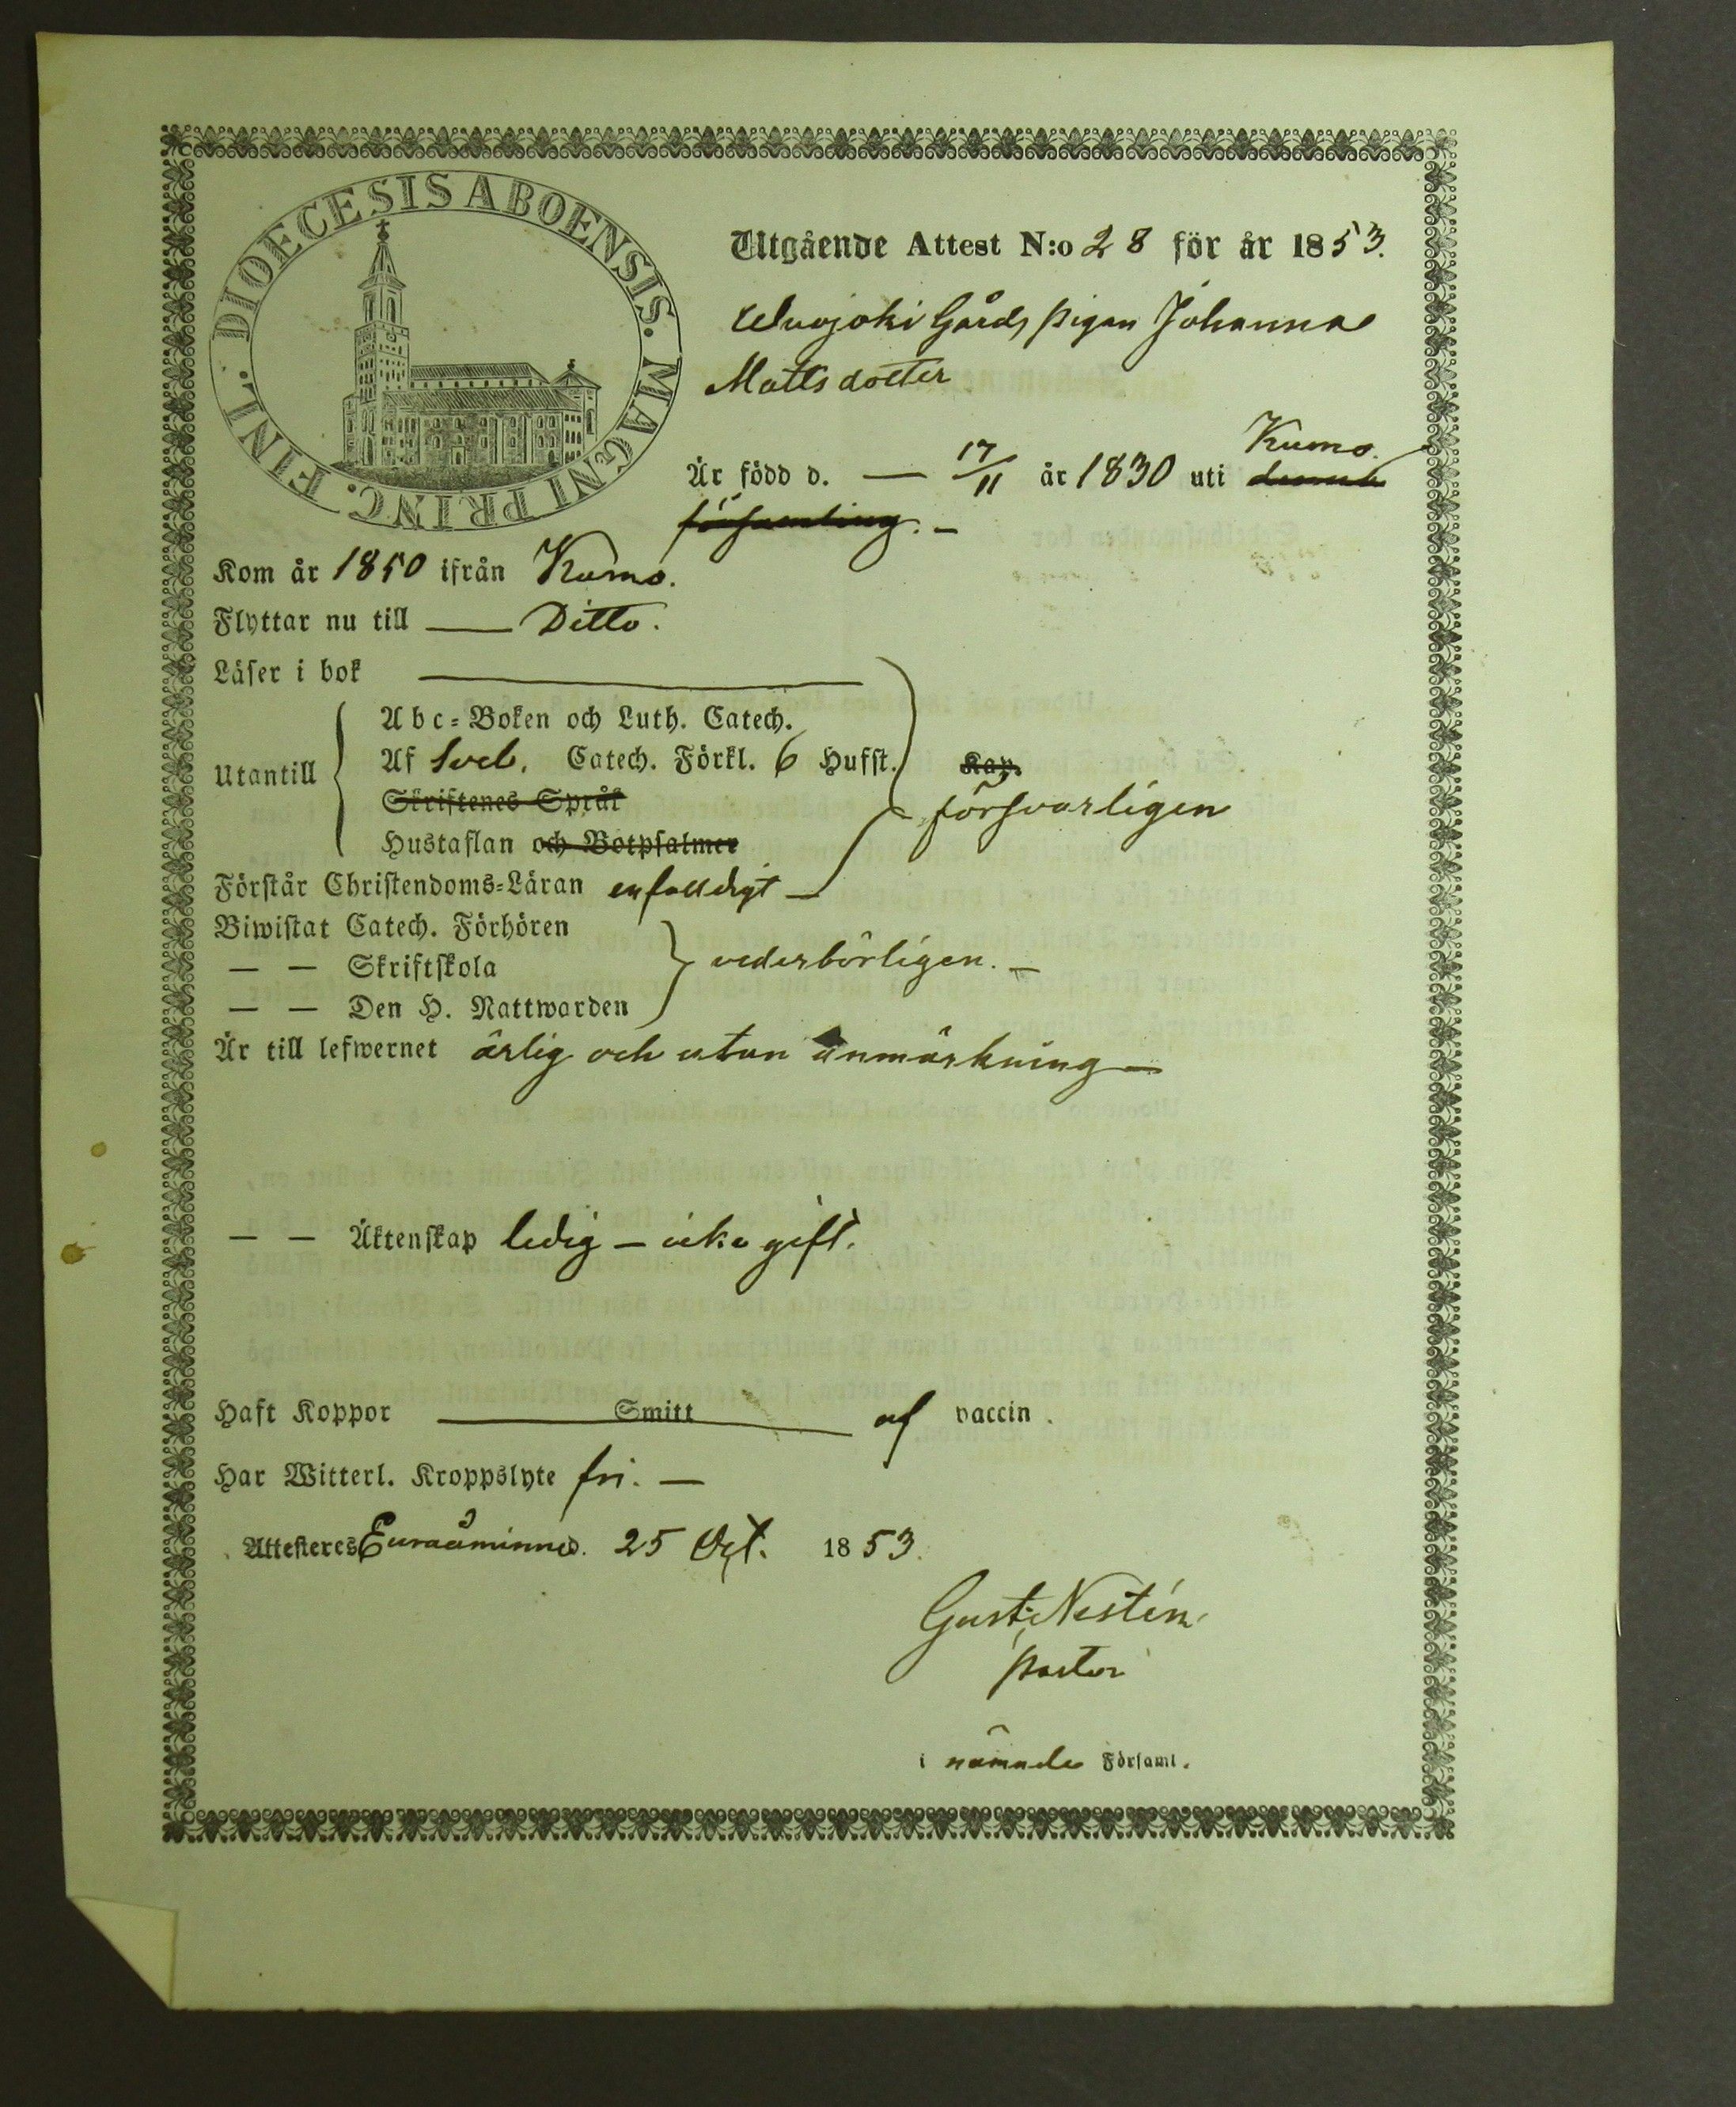 DIOECESIS ABOENSIS. MAGNI PRINC. FINL.
Utgående Attest N:o 28 för år 1853.
Wuojoki Gårds pigan Johanna
Mattsdotter
Kumo.
Är född d. — 17/11 år 1830 uti denna
församling. —
Kom år 1850 ifrån Kumo.
Flyttar nu till — Ditto.
Läser i bok —
Utantill
Abc-Boken och Luth. Catech.
Af Sveb. Catech. Förkl. 6 Hufst. Kap.
Skriftenes Språk
försvarligen
Hustaflan och Botpsalmer
Förstår Christendoms-Läran enfalldigt —
Biwistat Catech. Förhören
— — Skriftskola
vederbörligen. —
— — Den H. Nattwarden
Är till lefwernet ärlig och utan anmärkning —
— — Äktenskap ledig — icke gift.
Haft Koppor — Smitt af vaccin.
Har Witterl. Kroppslyte fri. —
Attesteres Euraåminne d. 25 Oct. 1853.
Gust. Nestén
pastor
i nämnde Församl.